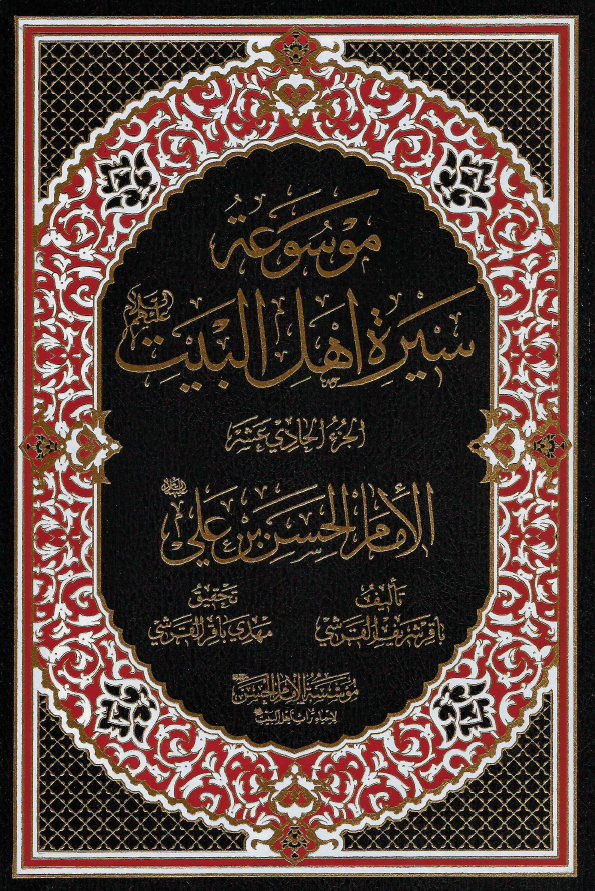 مَوْسُوعَةُ
سِيْرَةِ أَهْلِ الْبَيْتِ عليهم السلام
الجُزْءُ الحَادِي عَشَر
الإِمَامُ الحَسَنُ بْنُ عَلِي عليه السلام
تَأليفُ
بَاقِر شَرِيف القَرَشِي
تَحْقِيقُ
مَهْدِي بَاقِر القَرَشِي
مُؤَسَّسَةُ الإِمَامِ الحَسَنِ
لإحياء تراث أهل البيت